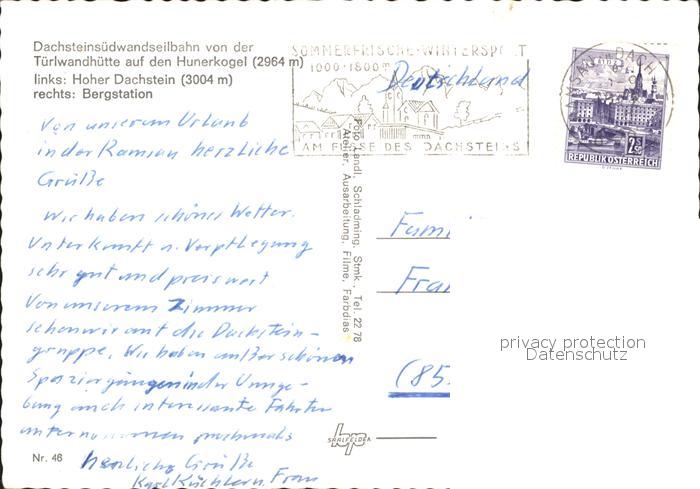 Dachsteinsüdwandseilbahn von der
Türlwandhütte auf den Hunerkogel (2964 m)
links: Hoher Dachstein (3004 m)
rechts: Bergstation
Von unserem Urlaub
in der Ramsau herzliche
Grüße
Wir haben schönes Wetter.
Unterkunft u. Verpflegung
sehr gut und preiswert
Von unserem Zimmer
schauen wir auf die Dachstein-
gruppe. Wir haben außer schönen
Spaziergängen in der Umge-
bung auch interessante Fahrten
unternommen nochmals
herzliche Grüße
Karl Küchler u. Frau
Nr. 46
Foto Landl, Schladming, Stmk., Tel. 22 78
Atelier, Ausarbeitung, Filme, Farbdias
SAALFELDEN
SOMMERFRISCHE-WINTERSPORT
1000-1800 m
AM FUSSE DES DACHSTEINS
Deutschland
REPUBLIK ÖSTERREICH
Fami
Fra
(85
privacy protection
Datenschutz